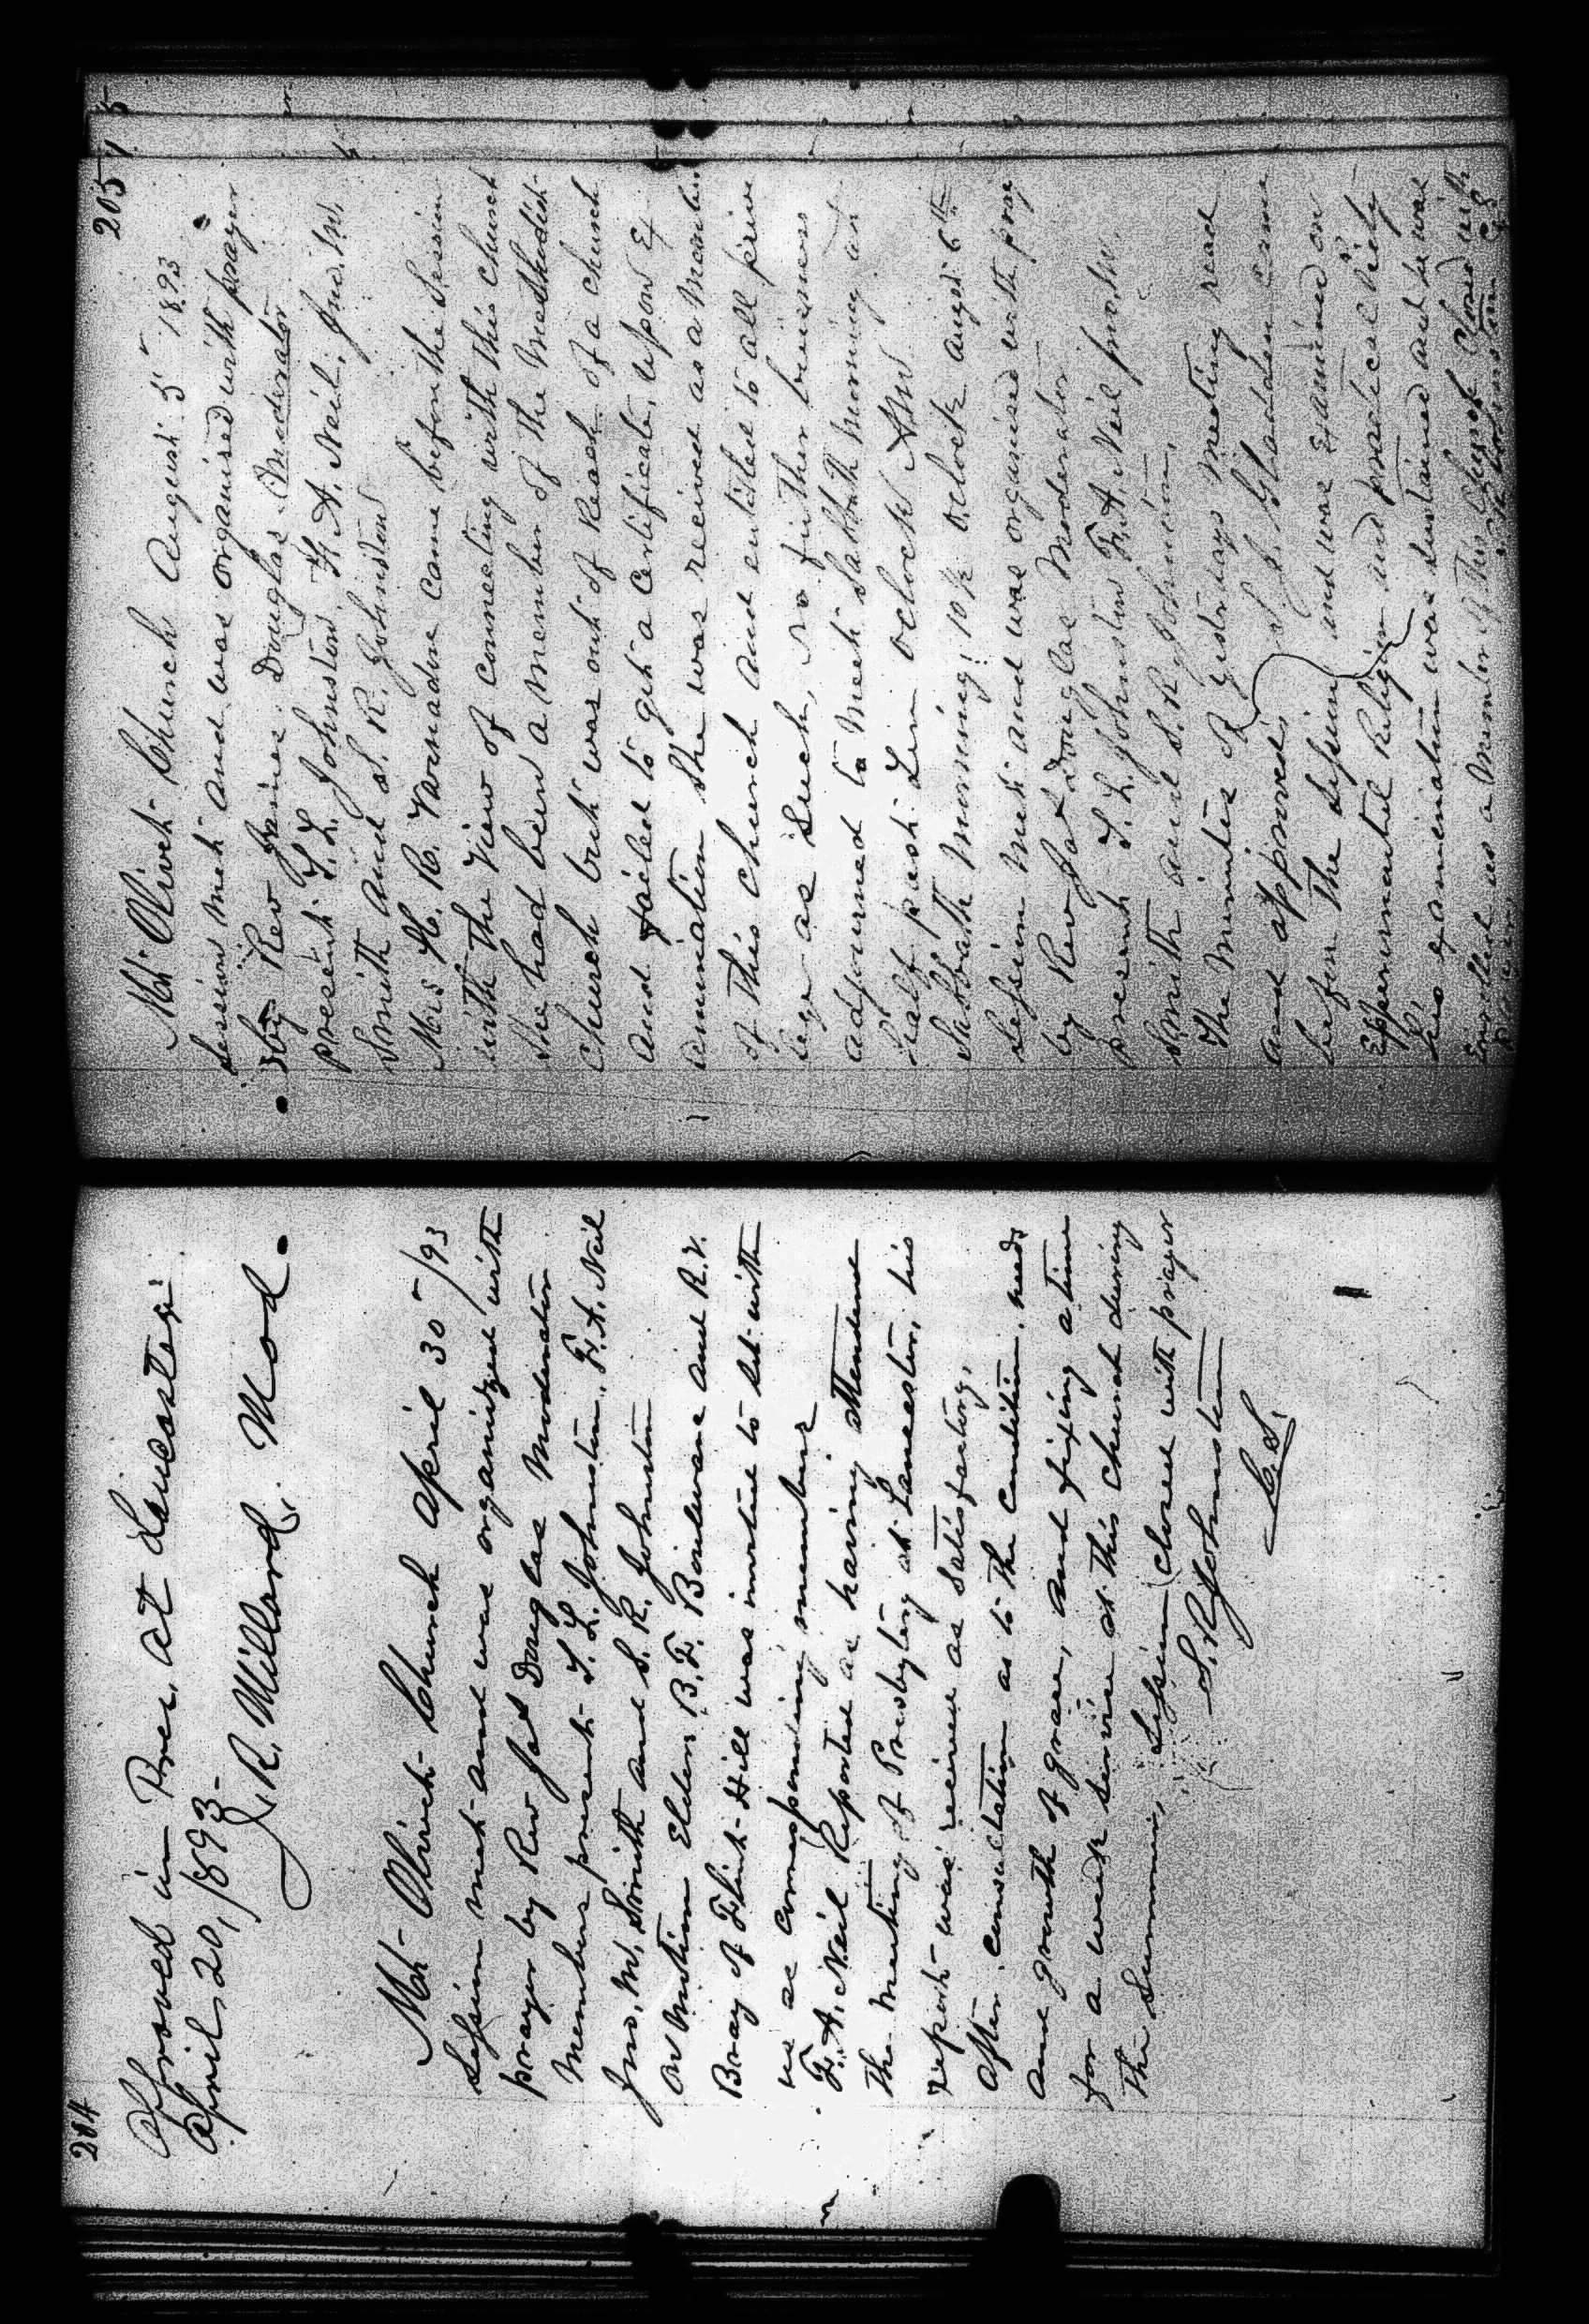 204
Approved in Pres. at Lancaster
April 20, 1893-
J. R. Millard. Mod.
Mt Olivet Church April 30 /93
Session met and was organized with
prayer by Rev Jas Douglas Moderator
Members present T. L. Johnston, F. A. Neil
Jno, W, Smith and S. R. Johnston
On Motion Elders B. F. Boulware and R. Y.
Bray of Flint Hill was invited to sit with
us as corresponding members
F. A. Neil Reported as having Attended
the meeting of Presbytery at Lancaster, his
report was received as satisfactory,
After consultation as to the condition, needs
and growth of grace, and fixing a time
for a weeks service at this church during
the Summer, Session closed with prayer
S. R. Johnston
C. S.
205
Mt Olivet Church August 5 1893
Session met and was organised with prayer
by Rev James Douglas Moderator
present T. L. Johnston, F. A. Neil, Jno. W.
Smith and S. R. Johnston
Mrs H. R. Varnadine came before the Session
with the view of connecting with this church
She had been a member of the Methodist
Church but was out of Reach of a church
and failed to get a Certificate, upon Ex
amination she was received as a Member
of this church and entitled to all prive
lege as Such, no further business
adjourned to meet Sabbath morning at
half past ten oclock AM
Sabbath Morning 10 1/2 oclock August 6th
Session met and was organised with pray
by Rev Jas Douglas Moderator
present T. L. Johnston F. A. Neil Jno. W.
Smith and S. R. Johnston,
The Minutes of yesterdays Meeting read
and approved, S. J. Gladden came
before the Session and was Examined on
Experimental Religion and practical Piety
his examination was sustained and he was
Enrolled as a member of this Church Closed with
prayer S R Johnston C S